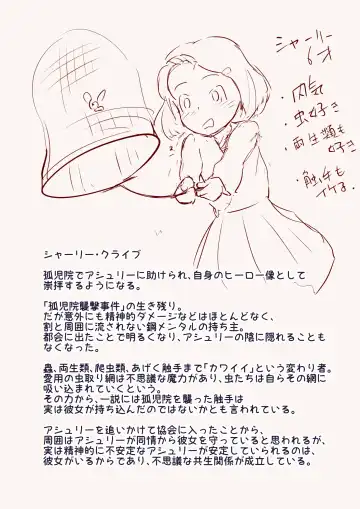 シャーリー
6才
・内気
・虫好き
・両生類も
好き
・触手も
イケる.
シャーリー・クライブ
孤児院でアシュリーに助けられ、自身のヒーロー像として
崇拝するようになる。
「孤児院襲撃事件」の生き残り。
だが意外にも精神的ダメージなどはほとんどなく、
割と周囲に流されない鋼メンタルの持ち主。
都会に出たことで明るくなり、アシュリーの陰に隠れることも
なくなった。
蟲、両生類、爬虫類、あげく触手まで「カワイイ」という変わり者。
愛用の虫取り網は不思議な魔力があり、虫たちは自らその網に
吸い込まれていくという。
その力から、一説には孤児院を襲った触手は
実は彼女が持ち込んだのではないかとも言われている。
アシュリーを追いかけて協会に入ったことから、
周囲はアシュリーが同情から彼女を守っていると思われるが、
実は精神的に不安定なアシュリーが安定していられるのは、
彼女がいるからであり、不思議な共生関係が成立している。